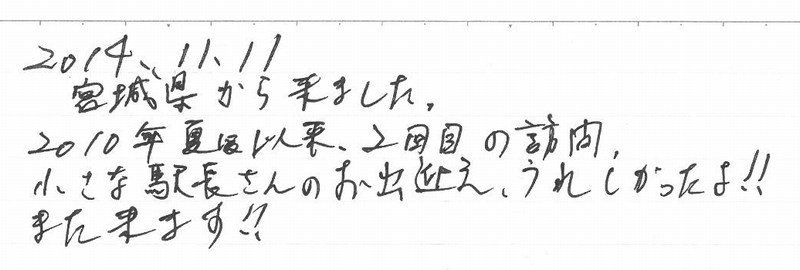 2014、11、11
宮城県から来ました。
2010年夏以来、2回目の訪問、
小さな駅長さんのお出迎え、うれしかったよ!!
また来ます!!